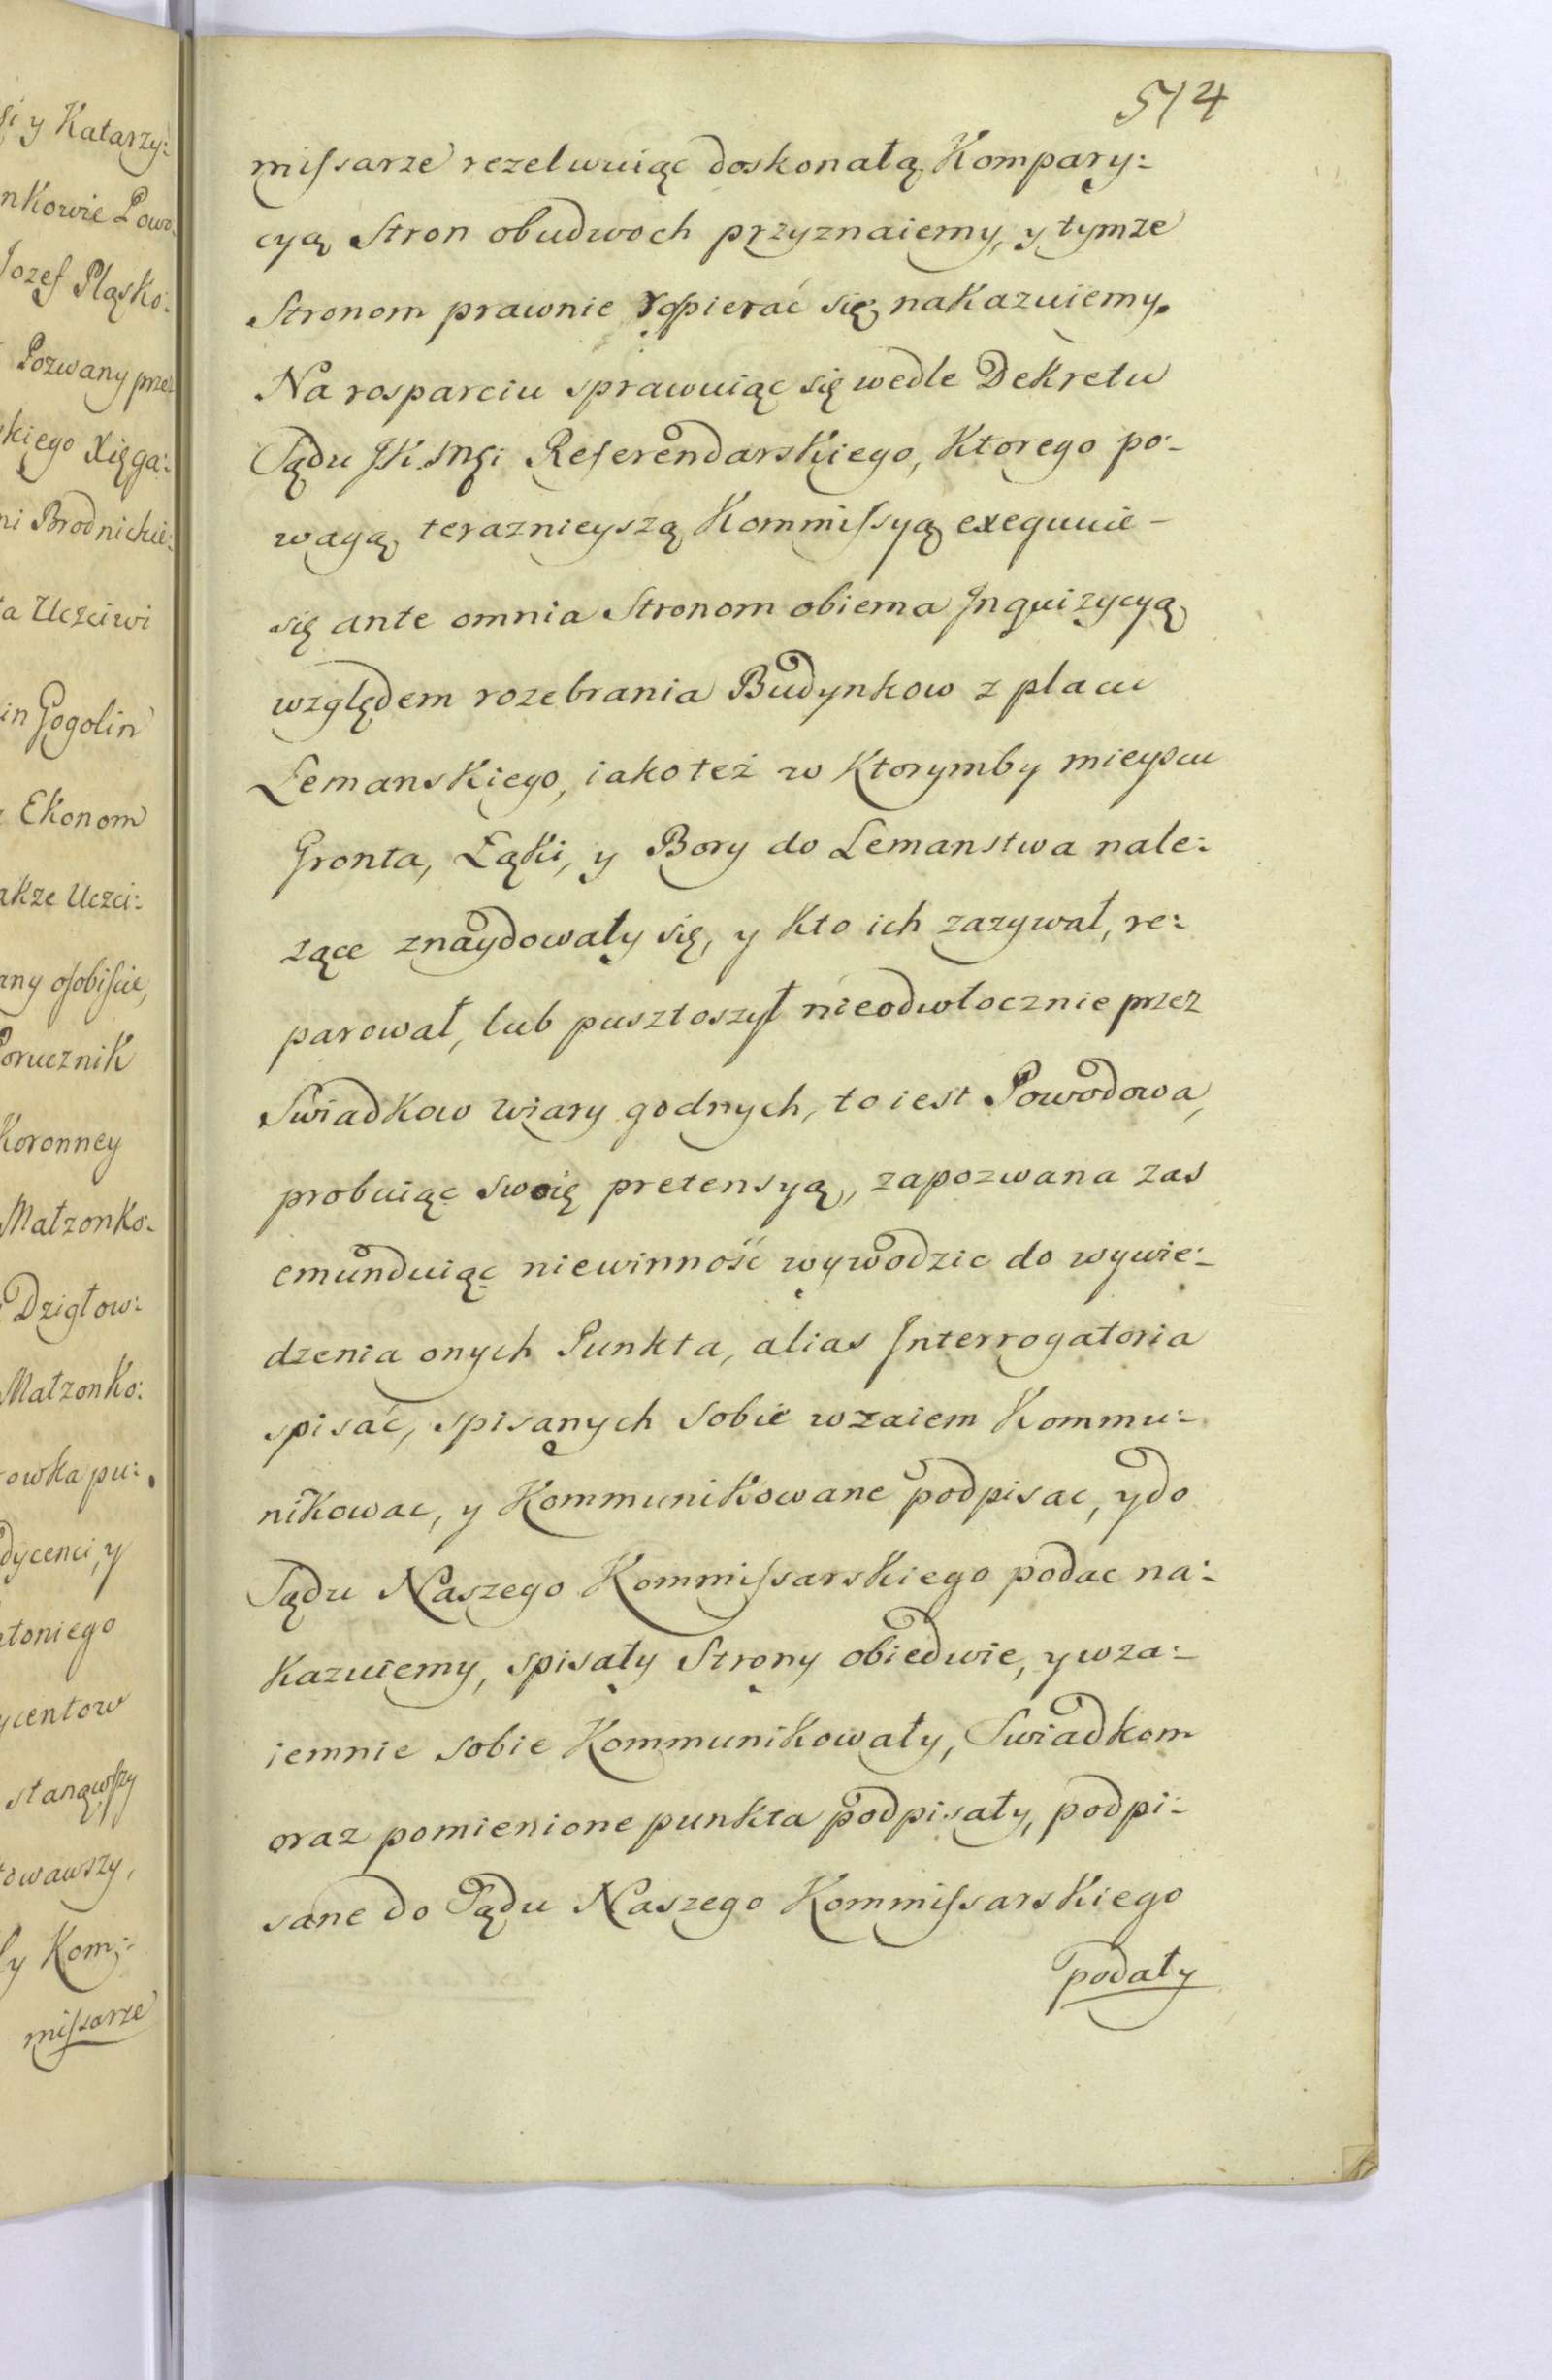 i y Katarzy:
nkowie Powo
Jozef Pląsko:
Pozwany prze
kiego Xięga:
ni Brodnickie:
ta Uczciwi
in Gogolin
Ekonom
akze Uczci:
any osobiscie,
Porucznik
Koronney
Małzonko:
Dzigłow:
Małzonko:
rowka pu:
dycenci, y
ntoniego
ycentow
stanąwszy
towawszy,
ly Kom:
missarze
514
missarze rezelwuiąc doskonałą Kompary:
cyą Stron obudwoch przyznaiemy, y tymze
Stronom prawnie rospierać się nakazuiemy.
Na rosparciu sprawuiąc się wedle Dekretu
Sądu JK Mci Referendarskiego, Ktorego po:
wagą teraznieyszą Kommissyą exequuie
się ante omnia Stronom obiema Jnquizycyą
względem rozebrania Budynkow z placu
Lemanskiego, iako też w Ktorymby mieyscu
Gronta, Łąki, y Bory do Lemanstwa nale:
zące znaydowały się, y kto ich zazywał, re:
parował, lub pusztoszył nieodwłocznie przez
Swiadkow wiary godnych, to iest Powodowa,
probuiąc swoię pretensyą, zapozwana zas
emunduiąc niewinność wywodzic do wywie:
dzenia onych Punkta, alias Jnterrogatoria
spisać, spisanych sobie wzaiem Kommu:
nikowac, y Kommunikowane podpisac, y do
Sądu Naszego Kommissarskiego podac na:
kazuiemy, spisały Strony obiedwie, y wza:
iemnie sobie Kommunikowały, Swiadkom
oraz pomienione punkta podpisały, podpi:
sane do Sądu Naszego Kommissarskiego
podały